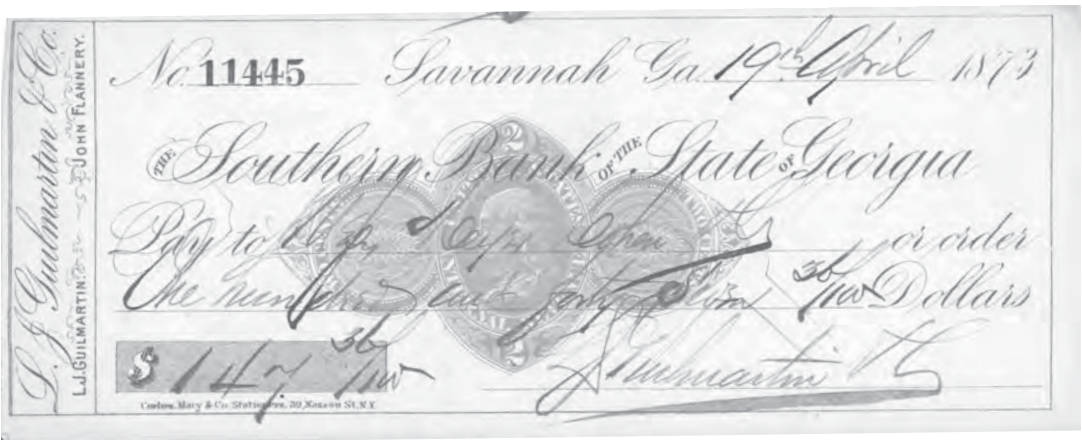 L. J. Guilmartin & Co.
L.J. GUILMARTIN. JOHN FLANNERY.
No. 11445 Savannah Ga. 19th April 1873
THE Southern Bank OF THE State OF Georgia
2
Pay to or order
One hundred and forty seven 36/100 Dollars
2
$ 147 36/100
L J Guilmartin & Co
Corlies, Macy & Co. Stationers, 39, Nassau St. N.Y.